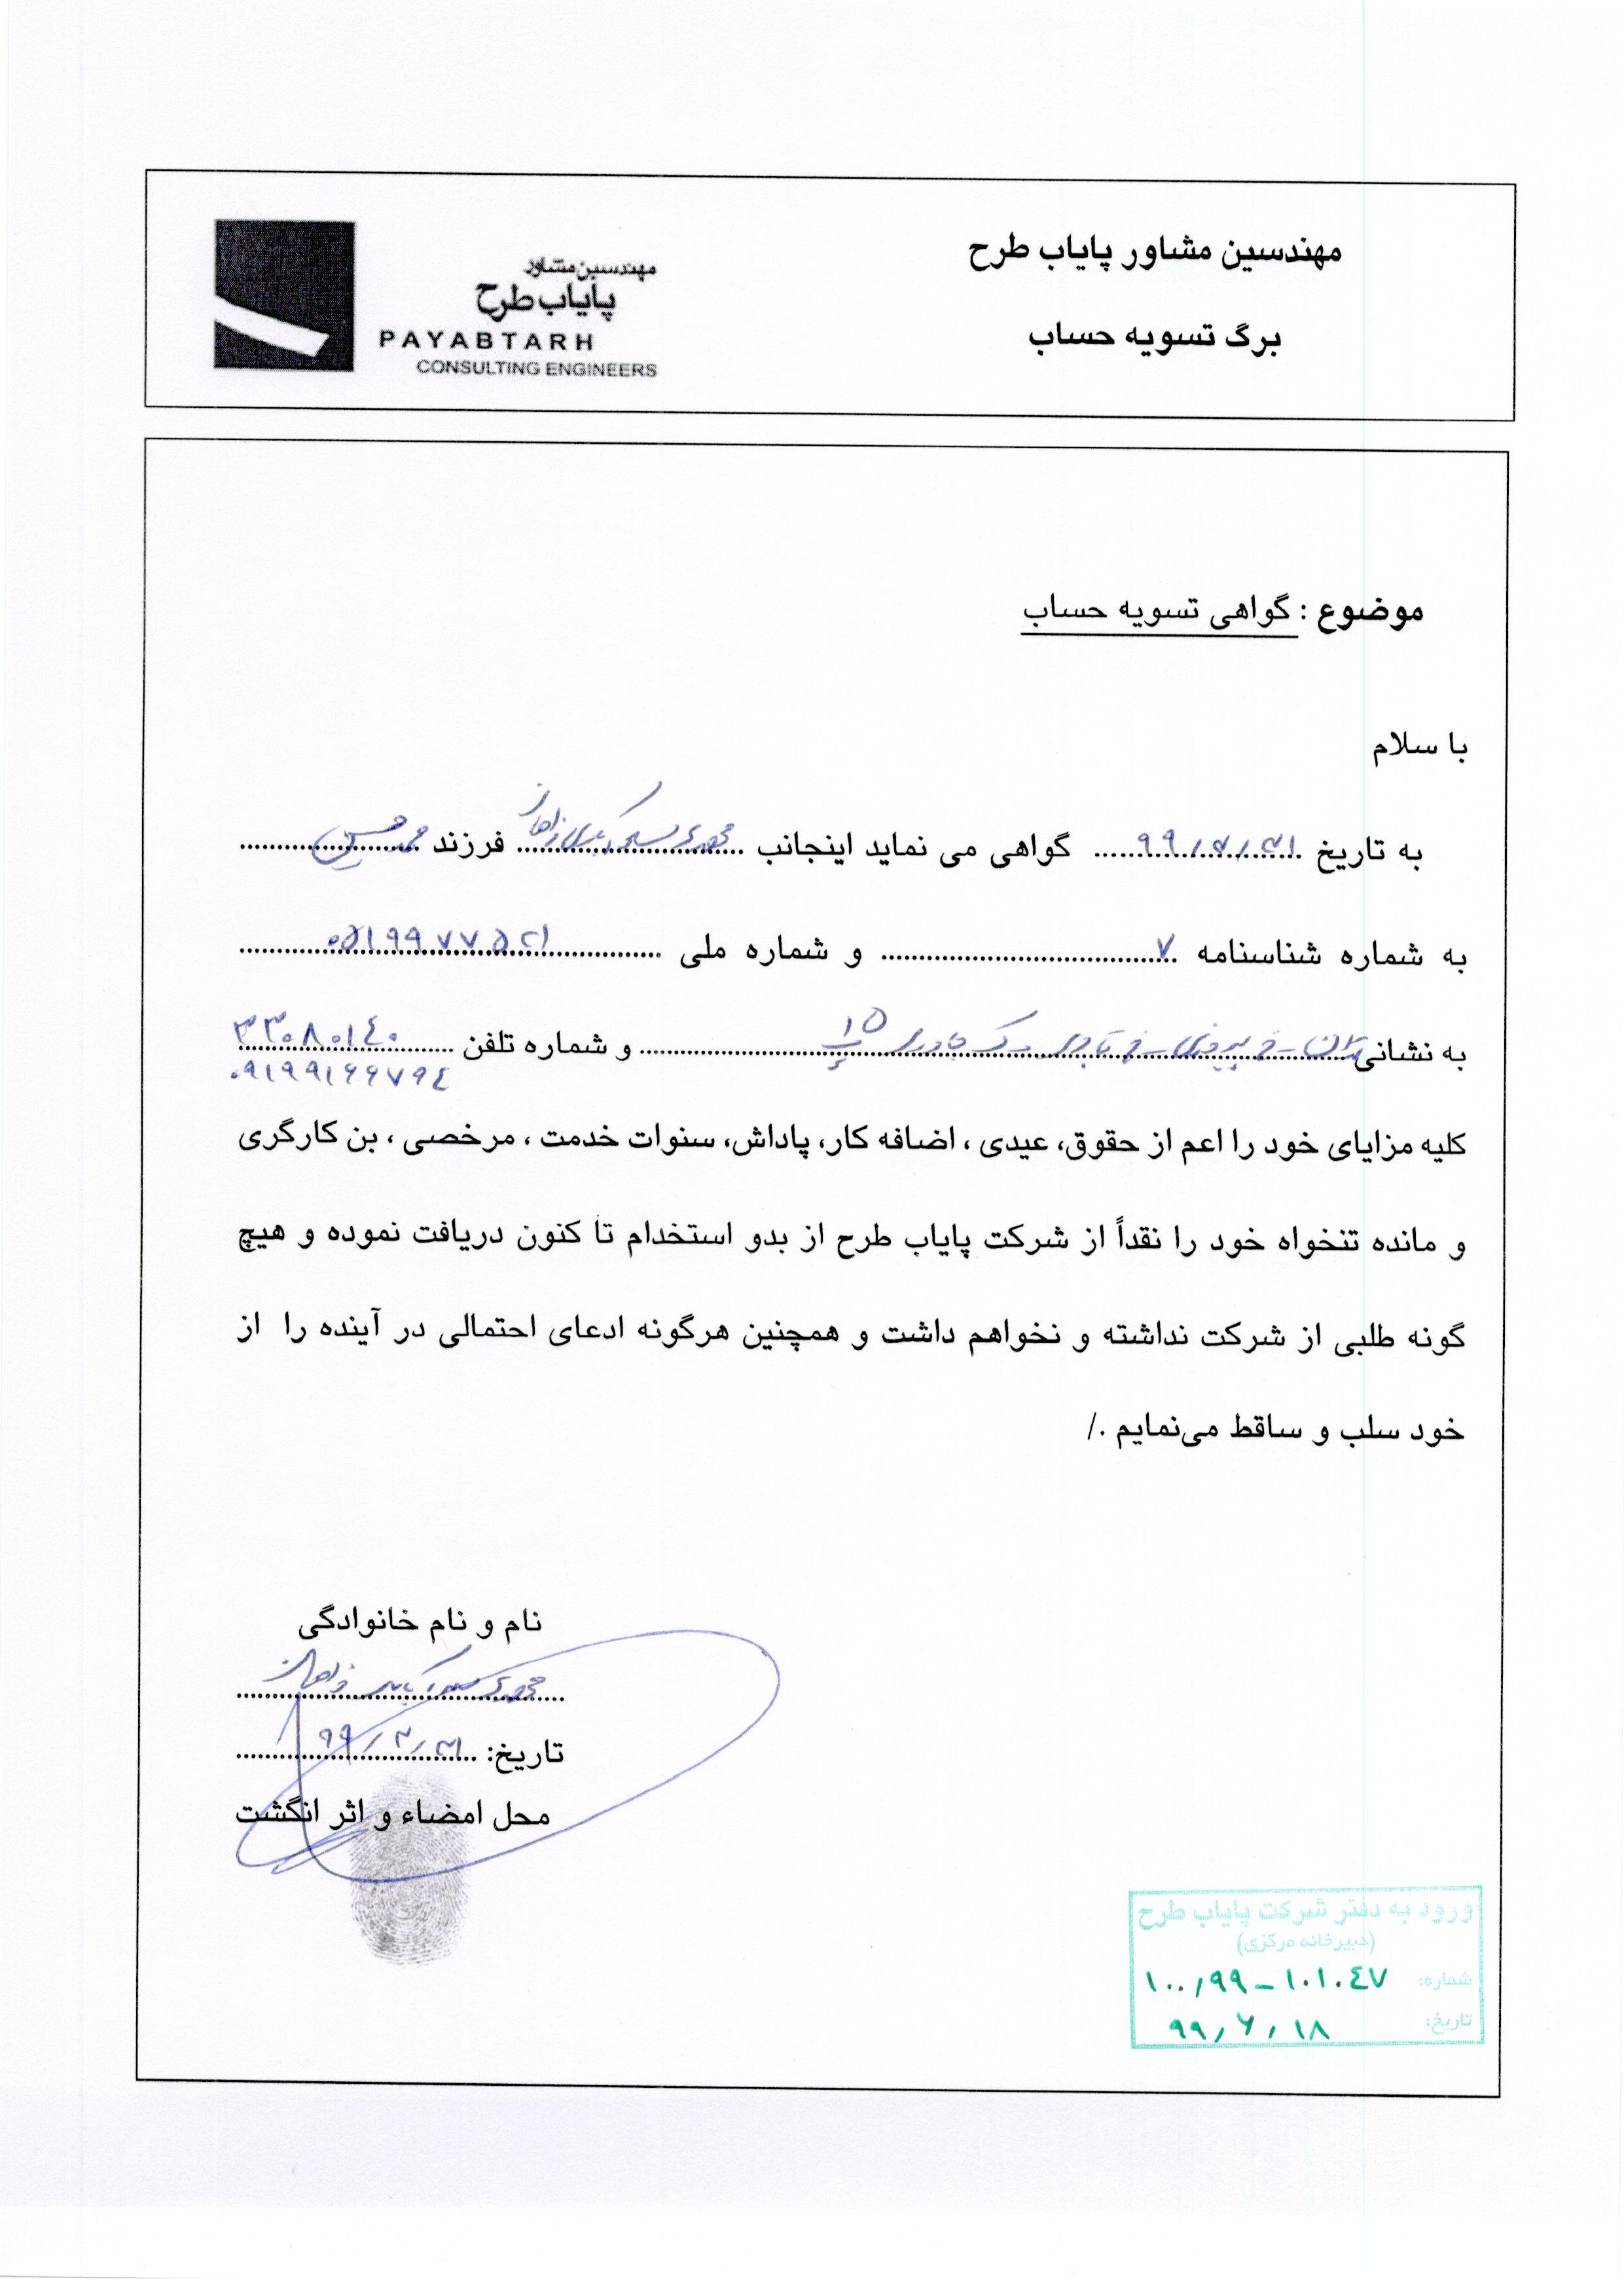 مهندسین مشاور پایاب طرح
برگ تسویه حساب
مهندسین مشاور
پایاب طرح
PAYABTARH
CONSULTING ENGINEERS
موضوع : گواهی تسویه حساب
با سلام
به تاریخ .......... گواهی می نماید اینجانب .......... فرزند محمدحسین
به شماره شناسنامه ۷ .......... و شماره ملی ..........
به نشانی .......... و شماره تلفن ۳۳۰۸۰۱۴۰
۰۹۱۹۹۱۶۶۷۹۴
کلیه مزایای خود را اعم از حقوق، عیدی ، اضافه کار، پاداش، سنوات خدمت ، مرخصی ، بن کارگری
و مانده تنخواه خود را نقداً از شرکت پایاب طرح از بدو استخدام تا کنون دریافت نموده و هیچ
گونه طلبی از شرکت نداشته و نخواهم داشت و همچنین هرگونه ادعای احتمالی در آینده را از
خود سلب و ساقط می‌نمایم ./
نام و نام خانوادگی
تاریخ:
محل امضاء و اثر انگشت
ورود به دفتر شرکت پایاب طرح
(دبیرخانه مرکزی)
شماره: ۱۰۰/۹۹-۱۰۱۰۴۷
تاریخ: ۹۹/۶/۱۸